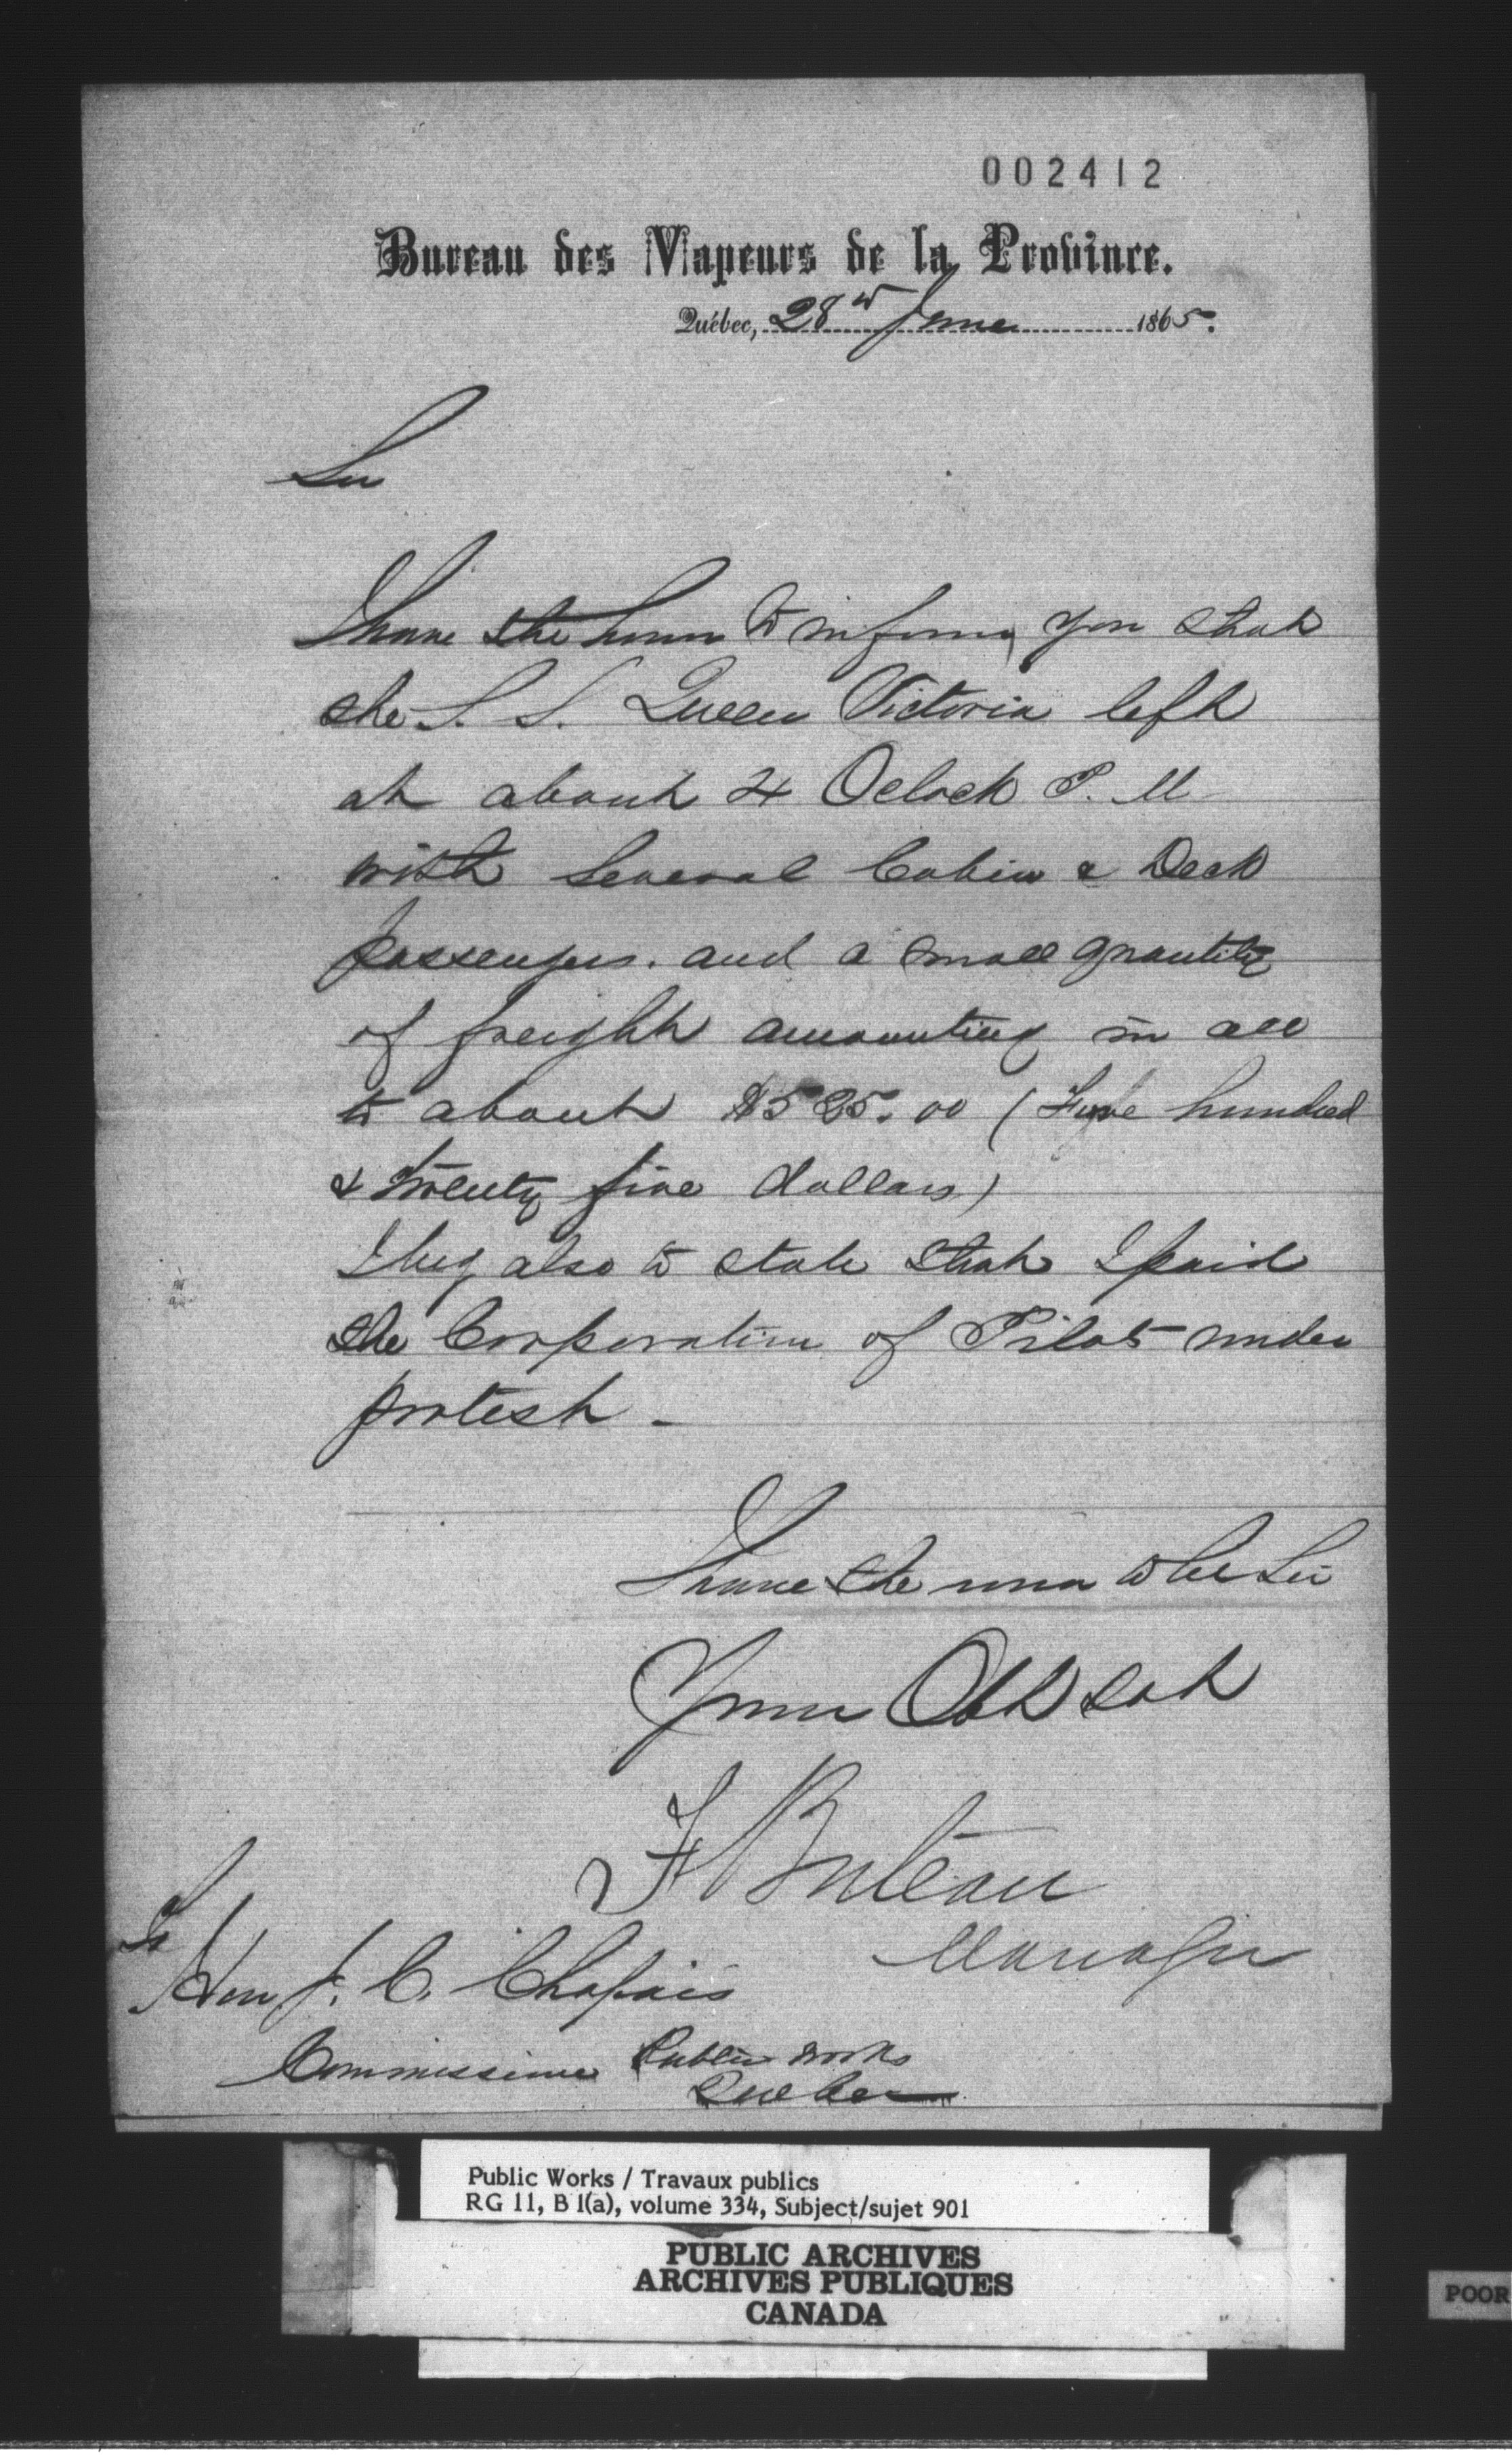 002412
Bureau des Vapeurs de la Province.
Québec, 28th June 1865.
Sir
I have the honor to inform you that
the S. S. Queen Victoria left
at about 4 Oclock P. M
with Several Cabin & Deck
passengers. and a small quantity
of freight amounting in all
to about $525.00 (Five hundred
& twenty five dollars)
I beg also to state that I paid
the Corporation of Pilots under
protest -
I have the honor to be Sir
Your Obt Sert
F Buteau
Manager
To
Hon J. C. Chapais
Commissioner Public Works
Quebec
Public Works / Travaux publics
RG 11, B 1(a), volume 334, Subject/sujet 901
PUBLIC ARCHIVES
ARCHIVES PUBLIQUES
CANADA
POOR